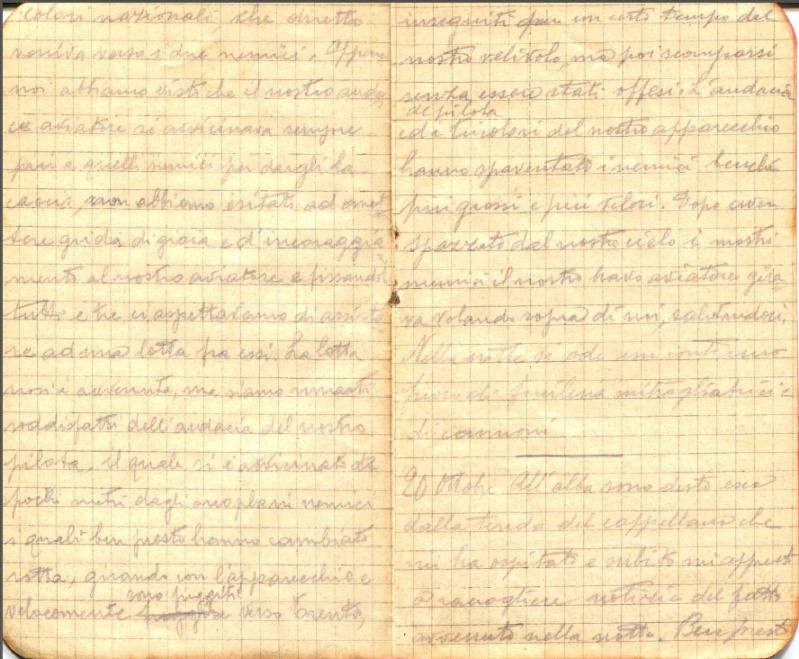 colori nazionali, che diretto
veniva verso i due nemici. Appena
noi abbiamo visti che il nostro auda-
ce aviatore si avvicinava sempre
più a quelli nemici per dargli la
caccia, non abbiamo esitato ad emet-
tere grida di gioia e d'incoraggia
mento al nostro aviatore e fissandoli
tutti e tre ci aspettavamo di assiste
re ad una lotta fra essi. La lotta
non è avvenuta, ma siamo rimasti
soddisfatti dell'audacia del nostro
pilota, il quale si è avvicinato a
pochi metri dagli aeroplani nemici
i quali ben presto hanno cambiato
rotta, girando con l'apparecchio e
sono fuggiti
velocemente verso Trento,
inseguiti per un certo tempo dal
nostro velivolo, ma poi scomparsi
senza essere stati offesi. L'audacia
del pilota
ed i tricolori del nostro apparecchio
hanno spaventato i nemici benchè
più grossi e più veloci. Dopo aver
spazzato dal nostro cielo i nostri
nemici il nostro bravo aviatore gira
va volando sopra di noi, salutandoci.
Nella notte si ode un continuo
fuoco di fucileria mitragliatrici e
di cannoni
20 Ottobre All'alba sono desto esco
dalla tenda del cappellano che
mi ha ospitato e subito mi appresto
a raccogliere notizie del fatto
avvenuto nella notte. Ben presto